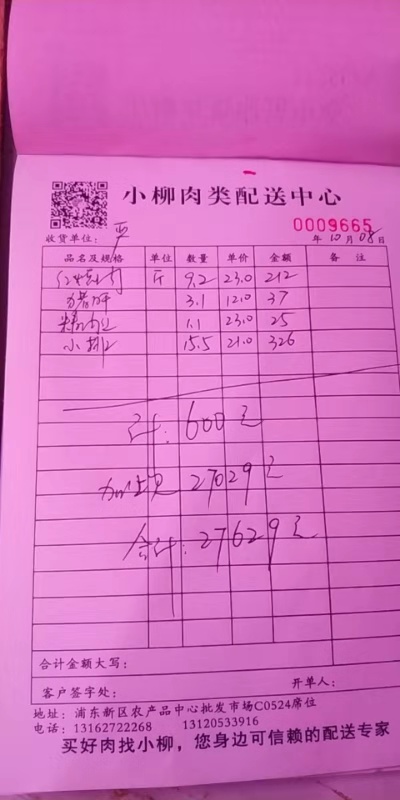 小柳肉类配送中心
0009665
收货单位: 年 10 月 08 日
品名及规格 单位 数量 单价 金额 备注
红烧肉 斤 9.2 23.0 212
猪肝 3.1 12.0 37
1.1 23.0 25
小排 15.5 21.0 326
计: 600元
27029元
合计: 27629元
合计金额大写:
客户签字处: 开单人:
地址: 浦东新区农产品中心批发市场C0524席位
电话: 13162722268 13120533916
买好肉找小柳，您身边可信赖的配送专家